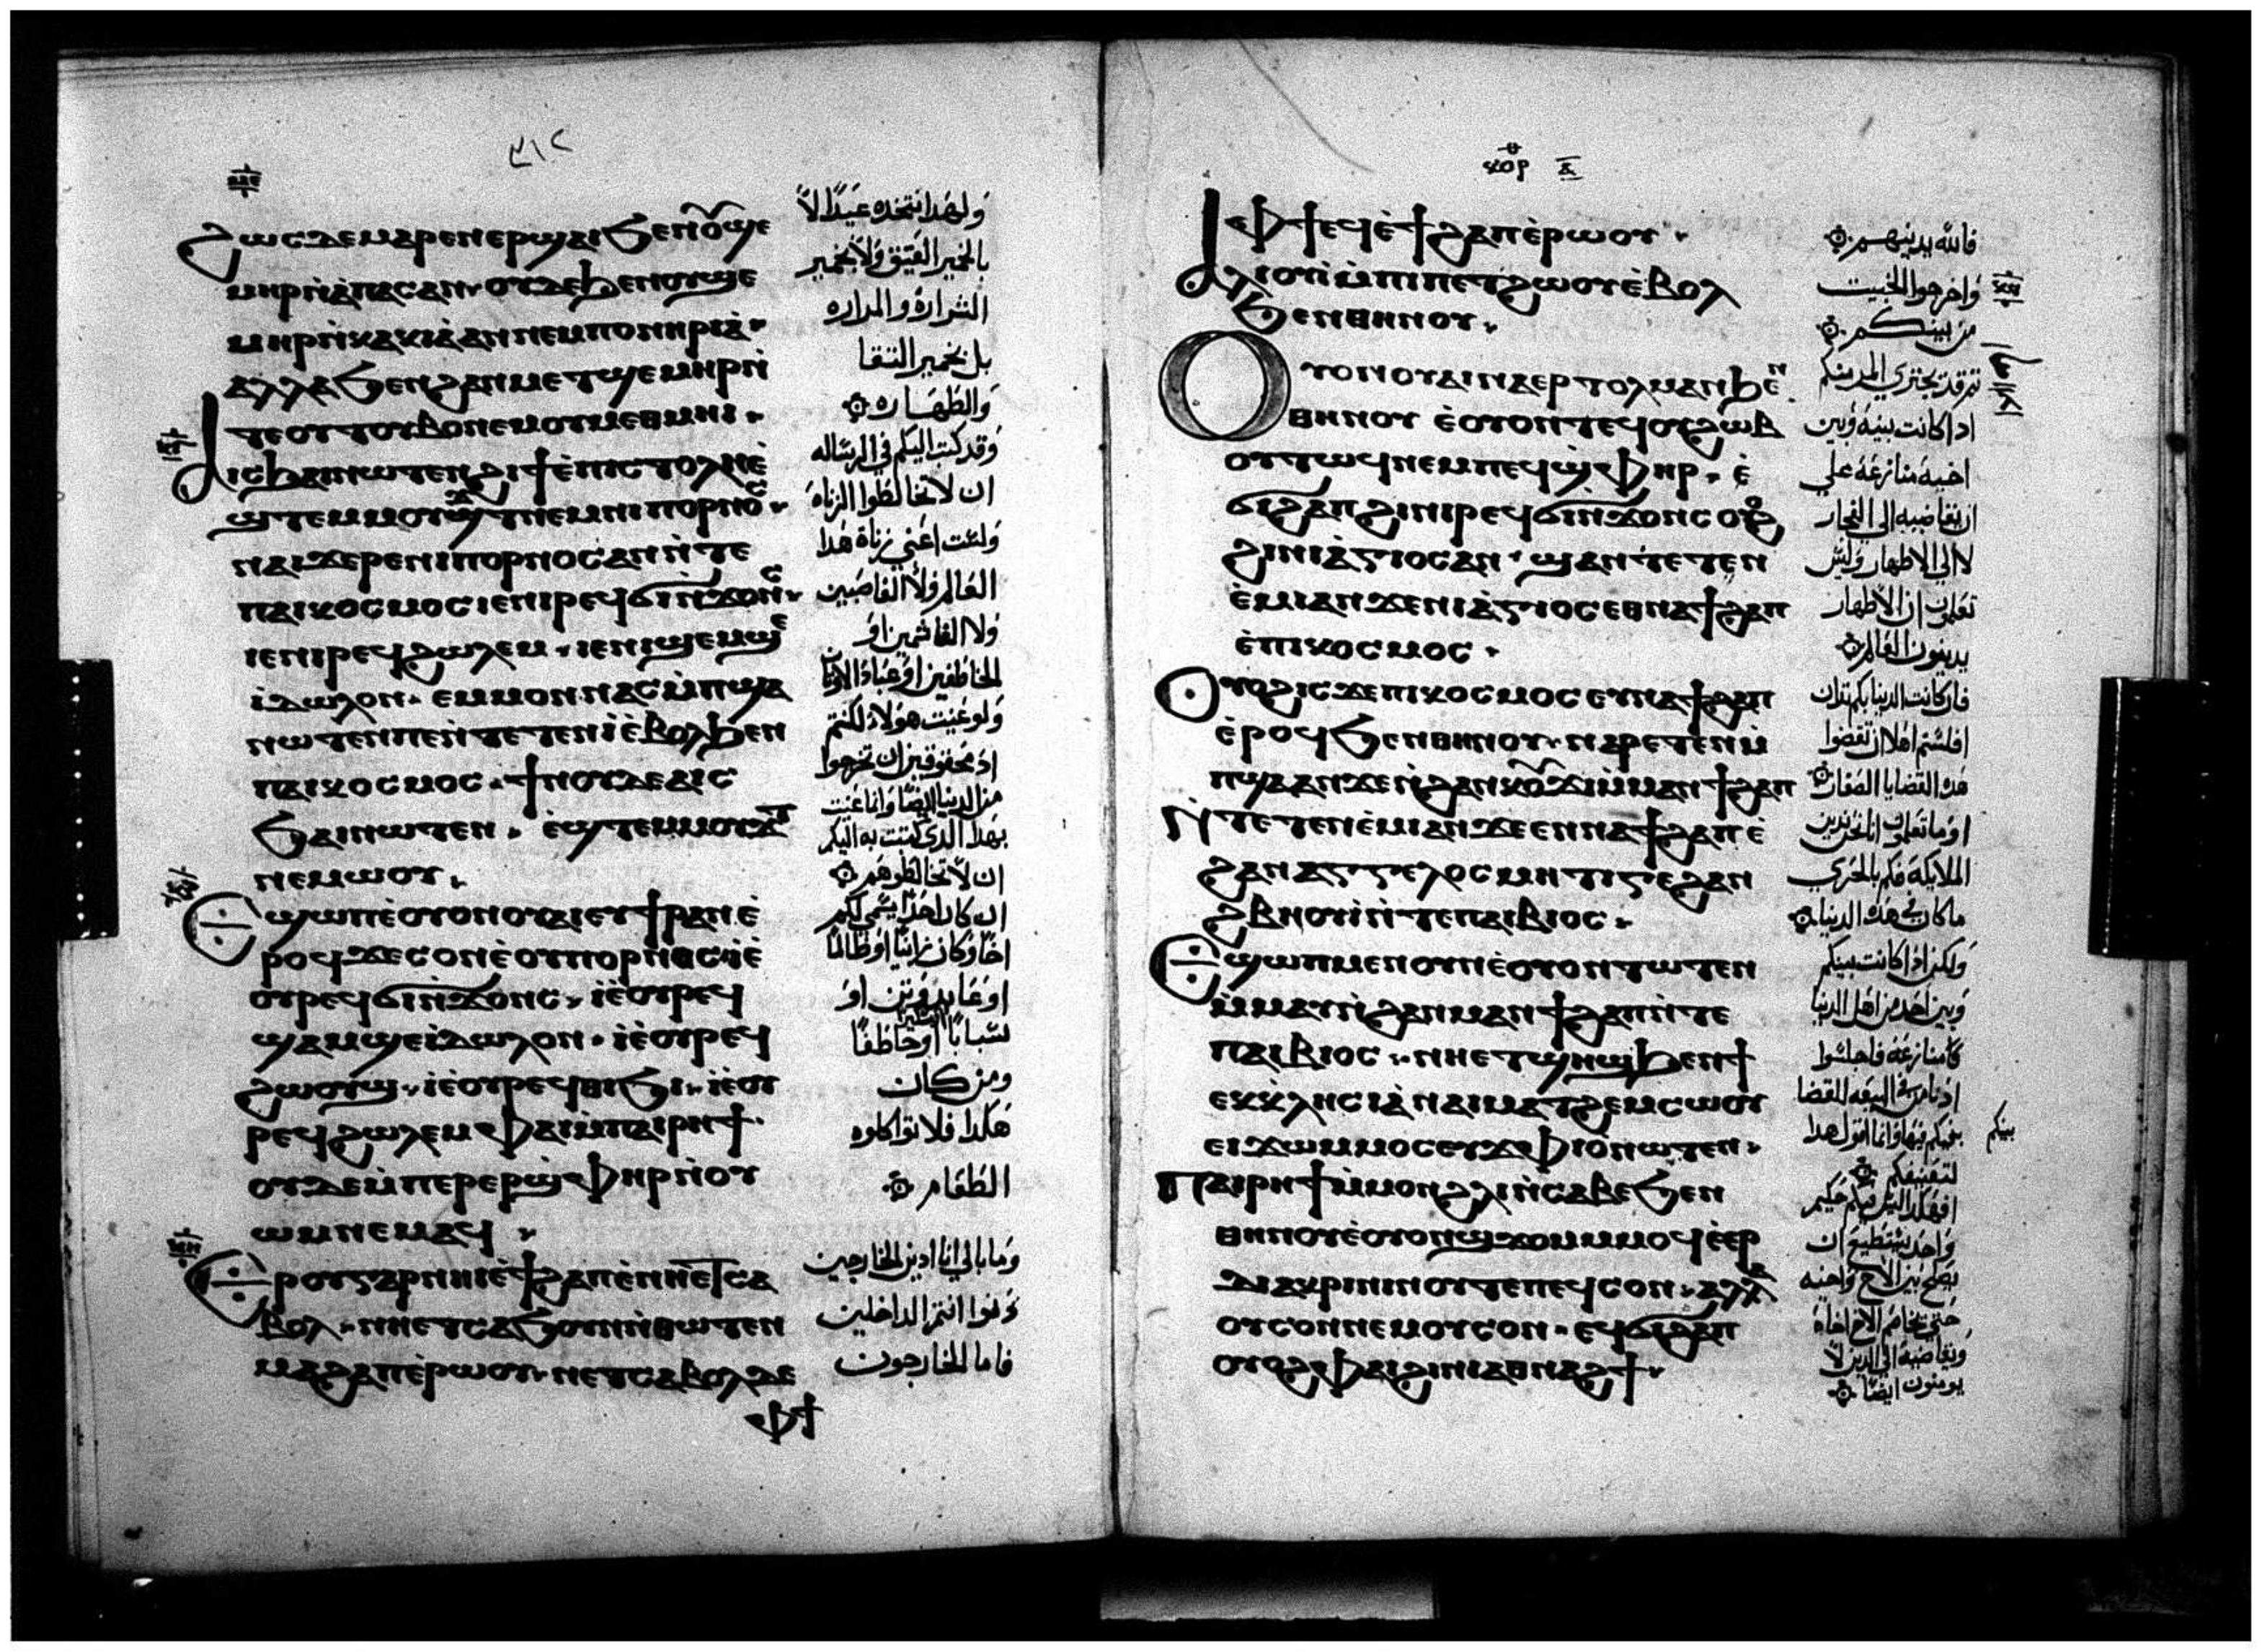 ٣١٢
ϩⲱⲥⲇⲉⲙⲁⲣⲉⲛⲉⲣϣⲁⲓϧⲉⲛⲟ̅ϣⲉ
ⲙⲏⲣⲛ̀ⲁ̀ⲡⲁⲥⲁⲛ· ⲟⲩⲇⲉϧⲉⲛⲟⲩϣⲉ
ⲙⲏⲣⲛ̀ⲕⲁⲕⲓⲁ̀ⲁⲛⲛⲉⲙⲡⲟⲛⲏⲣⲓⲁ̀·
ⲁⲗⲗⲁϧⲉⲛϩⲁⲛⲙⲉⲧϣⲉⲙⲏⲣⲛ̀
ⲧⲉⲟⲩⲧⲟⲩⲃⲟⲛⲉⲙⲟⲩⲙⲉⲑⲙⲏⲓ·
ⲁⲓⲥϧⲁⲓⲛⲱⲧⲉⲛϩⲓϯⲉ̀ⲡⲓⲥⲧⲟⲗⲏⲉ̀
ϣⲧⲉⲙⲙⲟⲩϫⲧⲛⲉⲙⲛⲓⲡⲟⲣⲛⲟⲥ·
ⲛⲁⲓϫⲉⲣⲉⲛⲓⲡⲟⲣⲛⲟⲥⲁⲛⲛ̀ⲧⲉ
ⲡⲁⲓⲕⲟⲥⲙⲟⲥⲓⲉⲛⲓⲣⲉϥϭⲓⲛ̀ϫⲟⲛⲥ·
ⲓⲉⲛⲓⲣⲉϥϩⲱⲗⲉⲙ· ⲓⲉⲛⲓϣⲉⲙϣⲉ
ⲓ̀ⲇⲱⲗⲟⲛ· ⲉⲙⲙⲟⲛⲛⲁⲥⲙ̀ⲡϣⲁ
ⲛⲱⲧⲉⲛⲡⲉⲛ̀ⲧⲉⲧⲉⲛⲓ̀ⲉ̀ⲃⲟⲗϧⲉⲛ
ⲡⲁⲓⲕⲟⲥⲙⲟⲥ· ϯⲛⲟⲩⲇⲉⲁⲓⲥ
ϧⲁⲓⲛⲱⲧⲉⲛ· ⲉ̀ϣⲧⲉⲙⲙⲟⲩϫⲧ
ⲛⲉⲙⲱⲟⲩ·
ⲉϣⲱⲡⲉ̀ⲟⲩⲟⲛⲟⲩⲁⲓⲉⲩϯⲣⲁⲛⲉ̀
ⲣⲟϥϫⲉⲥⲟⲛⲉ̀ⲟⲩⲡⲟⲣⲛⲟⲥⲓⲉ̀
ⲟⲩⲣⲉϥϭⲓⲛ̀ϫⲟⲛⲥ· ⲓⲉ̀ⲟⲩⲣⲉϥ
ϣⲁⲙϣⲉⲓ̀ⲇⲱⲗⲟⲛ· ⲓⲉ̀ⲟⲩⲣⲉϥ
ϩⲱⲟⲩϣ· ⲓⲉ̀ⲟⲩⲣⲉϥⲑⲓϧⲓ· ⲓⲉ̀ⲟⲩ
ⲣⲉϥϩⲱⲗⲉⲙⲫⲁⲓⲙ̀ⲡⲁⲓⲣⲏϯ·
ⲟⲩⲇⲉⲙ̀ⲡⲉⲣⲉⲣϣ̀ⲫⲏⲣⲛ̀ⲟⲩ
ⲱⲙⲛⲉⲙⲁϥ·
ⲉⲣⲟⲩⲅⲁⲣⲛⲏⲓⲉ̀ϯϩⲁⲡⲉ̀ⲛⲏⲉⲧⲥⲁ
ⲃⲟⲗ· ⲛⲏⲉⲧⲥⲁϧⲟⲩⲛⲛ̀ⲑⲱⲧⲉⲛ
ⲙⲁϩⲁⲡⲉ̀ⲣⲱⲟⲩ· ⲛⲉⲧⲥⲁⲃⲟⲗⲇⲉ
ⲫϯ
ولهدا نتخده عيدًا لا
بالخمير العتيق ولا بخمير
الشراره والمراره
بل بخمير النقا
والطهاره
وقد كتبت اليكم في الرساله
ان لا تخالطوا الزناه
ولست اعني زناة هدا
العالم ولا الغاصبين
ولا الغاشمين او
الخاطفين او عباد الاوثان
ولو عنيت هولاد لكنتم
اد محقوقين ان تخرجوا
من الدنيا ايضًا وانما عنيت
بهدا الدي كتبت به اليكم
ان لا تخالطوهم
ان كان احد يسمى لكم
اخًا وكان زانيًا او ظالمًا
او عابد وثن او
سبابًا او خاطفًا
ومن كان
هكدا فلا تواكلوه
الطعام
وما بالي انا ادين الخارجين
دينوا انتم الداخلين
فاما الخارجون
ⲕⲟⲣ ⲁ̅
ⲫϯⲉϥⲉ̀ϯϩⲁⲡⲉ̀ⲣⲱⲟⲩ·
ⲁⲗⲓⲟⲩⲓ̀ⲙ̀ⲡⲓⲡⲉⲧϩⲱⲟⲩⲉ̀ⲃⲟⲗ
ϧⲉⲛⲑⲏⲛⲟⲩ·
ⲟⲩⲟⲛⲟⲩⲁⲓⲛⲁⲉⲣⲧⲟⲗⲙⲁⲛϧⲉⲛ
ⲑⲏⲛⲟⲩ ⲉ̀ⲟⲩⲟⲛⲧⲉϥⲟⲩϩⲱⲃ
ⲟⲩⲧⲱϥⲛⲉⲙⲡⲉϥϣ̀ⲫⲏⲣ· ⲉ̀
ϭⲓϩⲁⲡϩⲓⲛⲓⲣⲉϥϭⲓⲛϫⲟⲛⲥⲟⲩⲟϩ
ϩⲓⲛⲓⲁ̀ⲅⲓⲟⲥⲁⲛ· ϣⲁⲛⲧⲉⲧⲉⲛ
ⲉ̀ⲙⲓⲁⲛϫⲉⲛⲓⲁ̀ⲅⲓⲟⲥⲉⲑⲛⲁϯϩⲁⲡ
ⲉ̀ⲡⲓⲕⲟⲥⲙⲟⲥ·
ⲟⲩⲟϩⲓⲥϫⲉⲡⲓⲕⲟⲥⲙⲟⲥⲉⲩⲛⲁϯϩⲁⲡ
ⲉ̀ⲣⲟϥϧⲉⲛⲑⲏⲛⲟⲩ· ⲛⲁⲣⲉⲧⲉⲛⲙ̀
ⲡϣⲁⲁⲛϫⲉⲛ̀ϩⲁⲛⲕⲟ̅ϫⲓⲙ̀ⲙⲁⲛϯϩⲁⲡ
ⲛ̀ⲧⲉⲧⲉⲛⲉ̀ⲙⲓⲁⲛϫⲉⲉⲛⲛⲁϯϩⲁⲡⲉ̀
ϩⲁⲛⲁⲅⲅⲉⲗⲟⲥⲙⲏⲧⲓⲅⲉϩⲁⲛ
ϩⲃⲏⲟⲩⲓ̀ⲛ̀ⲧⲉⲡⲁⲓⲃⲓⲟⲥ·
ⲉϣⲱⲡⲙⲉⲛⲟⲩⲛⲉ̀ⲟⲩⲟⲛⲧⲱⲧⲉⲛ
ⲙ̀ⲙⲁⲩⲛ̀ϩⲁⲛⲙⲁⲛϯϩⲁⲡⲛ̀ⲧⲉ
ⲡⲁⲓⲃⲓⲟⲥ· ⲛⲏⲉⲧϣⲏϣϧⲉⲛϯ
ⲉⲕⲕⲗⲏⲥⲓⲁ̀ⲛⲁⲓⲙⲁⲧϩⲉⲙⲥⲱⲟⲩ
ⲉⲓϫⲱⲙⲙⲟⲥⲉⲩϫⲫⲓⲟⲛⲱⲧⲉⲛ·
ⲡⲁⲓⲣⲏϯⲙ̀ⲙⲟⲛϩⲗⲓⲛ̀ⲥⲁⲃⲉϧⲉⲛ
ⲑⲏⲛⲟⲩⲉ̀ⲟⲩⲟⲛϣϫⲟⲙⲙⲙⲟϥⲉ̀ⲉⲣ
ⲇⲓⲁⲕⲣⲓⲛⲓⲛⲟⲩⲧⲉⲡⲉϥⲥⲟⲛ· ⲁⲗⲗⲁ
ⲟⲩⲥⲟⲛⲛⲉⲙⲟⲩⲥⲟⲛ· ⲉϥϭⲓϩⲁⲡ
ⲟⲩⲟϩⲫⲁⲓϩⲓⲛⲓⲁⲑⲛⲁϩϯ·
فالله يدينهم
واخرجوا الخبيت
من بينكم
ثم قد يجتري المر منكم
ادا كانت بينه وبين
اخيه منازعة علي
ان يقاضيه الي الفجار
لا الي الاطهار وليس
تعلمون ان الاطهار
يدينون العالم
فان كانت الدنيا بكم تدان
افلستم اهلا ان تقضوا
هده القضايا الصغار
او ما تعلمون انا نحن ندين
الملايكة فكم بالحري
ما كان في هده الدنيا
ولكن ادا كانت بينكم
وبين احد من اهل الدنيا
منازعة فاجلسوا
للقضا
بينكم
لتعنيفكم
افهكدا ليس فيكم حكيم
واحد يستطيع ان
يصلح بين الاخ واخيه
حتي يخاصم الاخ اخاه
ويقاضيه الي الدين لا
يومنون ايضًا